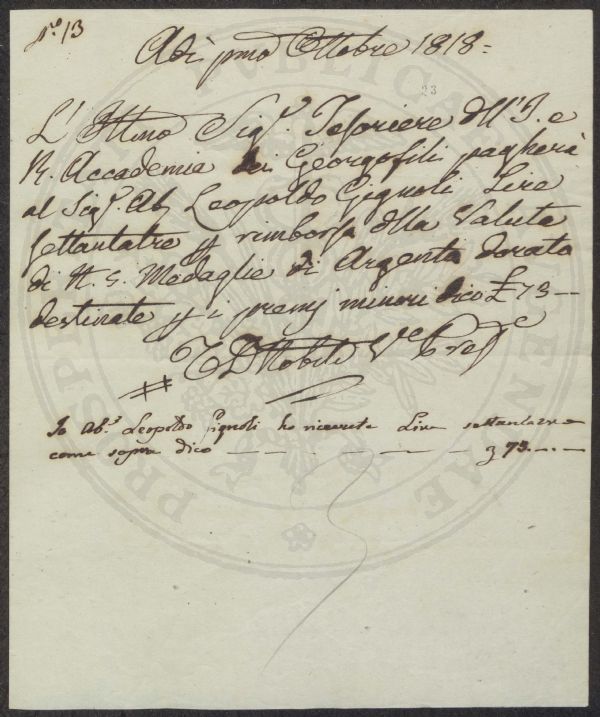 N.º 13
Adì pmo Ottobre 1818 =
23
L' Illmo Sigr. Tesoriere dell' I. e
R. Accademia dei Georgofili pagherà
al Sigr. Ab. Leopoldo Gignoli Lire
Settantatre p rimborso della Valuta
di N. 5. Medaglie di Argento dorato
destinate p i premj minori dico £ 73 —
Ve Preste
Io Abe. Leopoldo Gignoli ho ricevute Lire settantatre
come sopra dico — — — — — — £ 73. — . —
PUBLICAE
PROSPERITATI